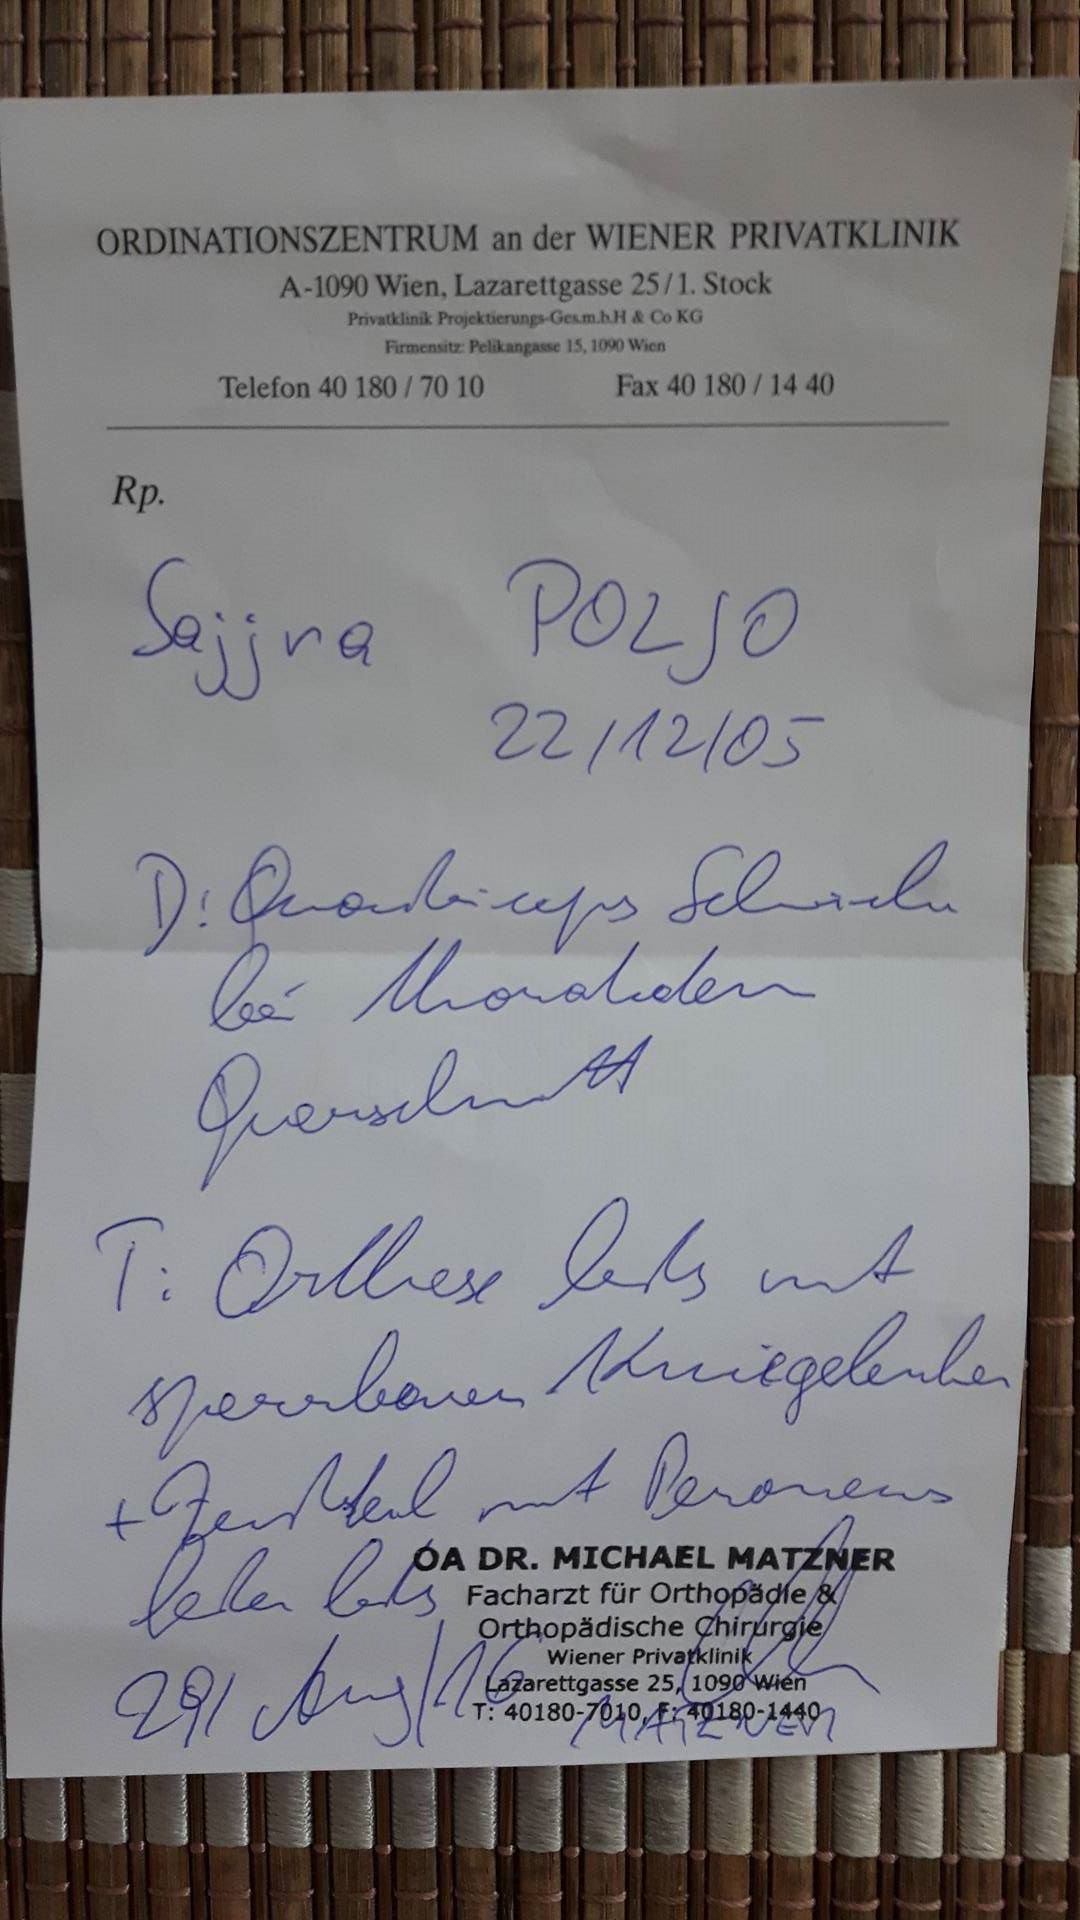 ORDINATIONSZENTRUM an der WIENER PRIVATKLINIK
A-1090 Wien, Lazarettgasse 25/1. Stock
Privatklinik Projektierungs-Ges.m.b.H & Co KG
Firmensitz: Pelikangasse 15, 1090 Wien
Telefon 40 180 / 70 10 Fax 40 180 / 14 40
Rp.
Sajjra POLJO
22/12/05
D: Quadriceps Schwäche
bei thorakalem
Querschnitt
T: Orthese links mit
sperrbaren Kniegelenken
+ mit Peroneus
links
OA DR. MICHAEL MATZNER
Facharzt für Orthopädie &
Orthopädische Chirurgie
Wiener Privatklinik
Lazarettgasse 25, 1090 Wien
T: 40180-7010, F: 40180-1440
29/ Aug/16 MATZNER